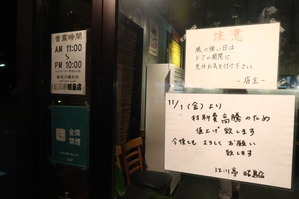 営業時間
AM 11:00
～
PM 10:00
江川亭 昭島店
全席
禁煙
注意
風の強い日は
ドアの開閉に
充分お気を付け下さい
-店主-
11/1(金)より
材料費高騰のため
値上げ致します
今後ともよろしくお願い
致します
江川亭 昭島店